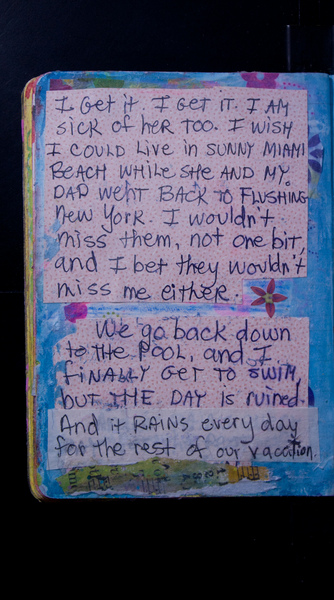 I Get it. I GET IT. I AM
sick of her TOO. I WISH
I COULD LIVE in SUNNY MIAMI
BEACH WHILE SHE AND MY
DAD WENT BACK TO FLUSHING
New YORK. I wouldn't
miss them, not one bit,
and I bet they wouldn't
miss me either.
We go back down
to the POOL, and I
FINALLY GET TO SWIM,
but THE DAY is ruined.
And it RAINS every day
for the rest of our vacation.